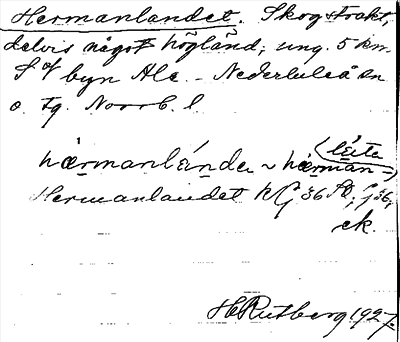 Hermanlandet. Skogstrakt,
delvis något högland; ung. 5 km.
S of byn Ale. - Nederluleå sn
o. tg. Norrb. l.
(léita
hærmanlándɐ ~ hærmán-)
Hermanlandet KG 36
ek.
H Rutberg 1927.